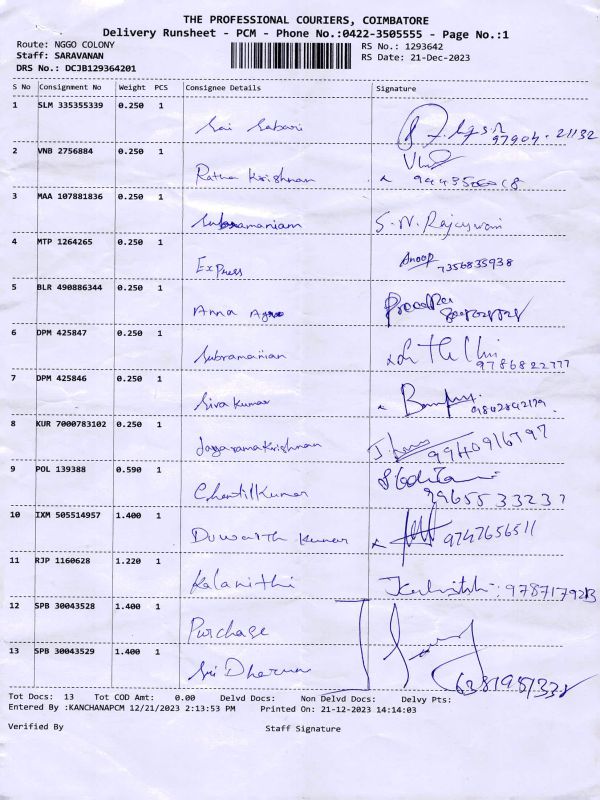 THE PROFESSIONAL COURIERS, COIMBATORE
Delivery Runsheet - PCM - Phone No.:0422-3505555 - Page No.:1
Route: NGGO COLONY RS No.: 1293642
Staff: SARAVANAN RS Date: 21-Dec-2023
DRS No.: DCJB129364201
S No Consignment No Weight PCS Consignee Details Signature
1 SLM 335355339 0.250 1
Sai Sabari 97904-21132
2 VNB 2756884 0.250 1
Ratna Krishnan
3 MAA 107881836 0.250 1
Subramaniam S.N. Rajeswari
4 MTP 1264265 0.250 1
Express Anoop 7356835938
5 BLR 490886344 0.250 1
Anna
6 DPM 425847 0.250 1
Subramanian 9786822777
7 DPM 425846 0.250 1
Siva Kumar
8 KUR 7000783102 0.250 1
Jayaramakrishnan 9940916797
9 POL 139388 0.590 1
Chentil Kumar 9965533237
10 IXM 505514957 1.400 1
Kumar 9747656511
11 RJP 1160628 1.220 1
Kalanithi
12 SPB 30043528 1.400 1
Purchase
13 SPB 30043529 1.400 1
Sri Dharun
Tot Docs: 13 Tot COD Amt: 0.00 Delvd Docs: Non Delvd Docs: Delvy Pts:
Entered By :KANCHANAPCM 12/21/2023 2:13:53 PM Printed On: 21-12-2023 14:14:03
Verified By Staff Signature